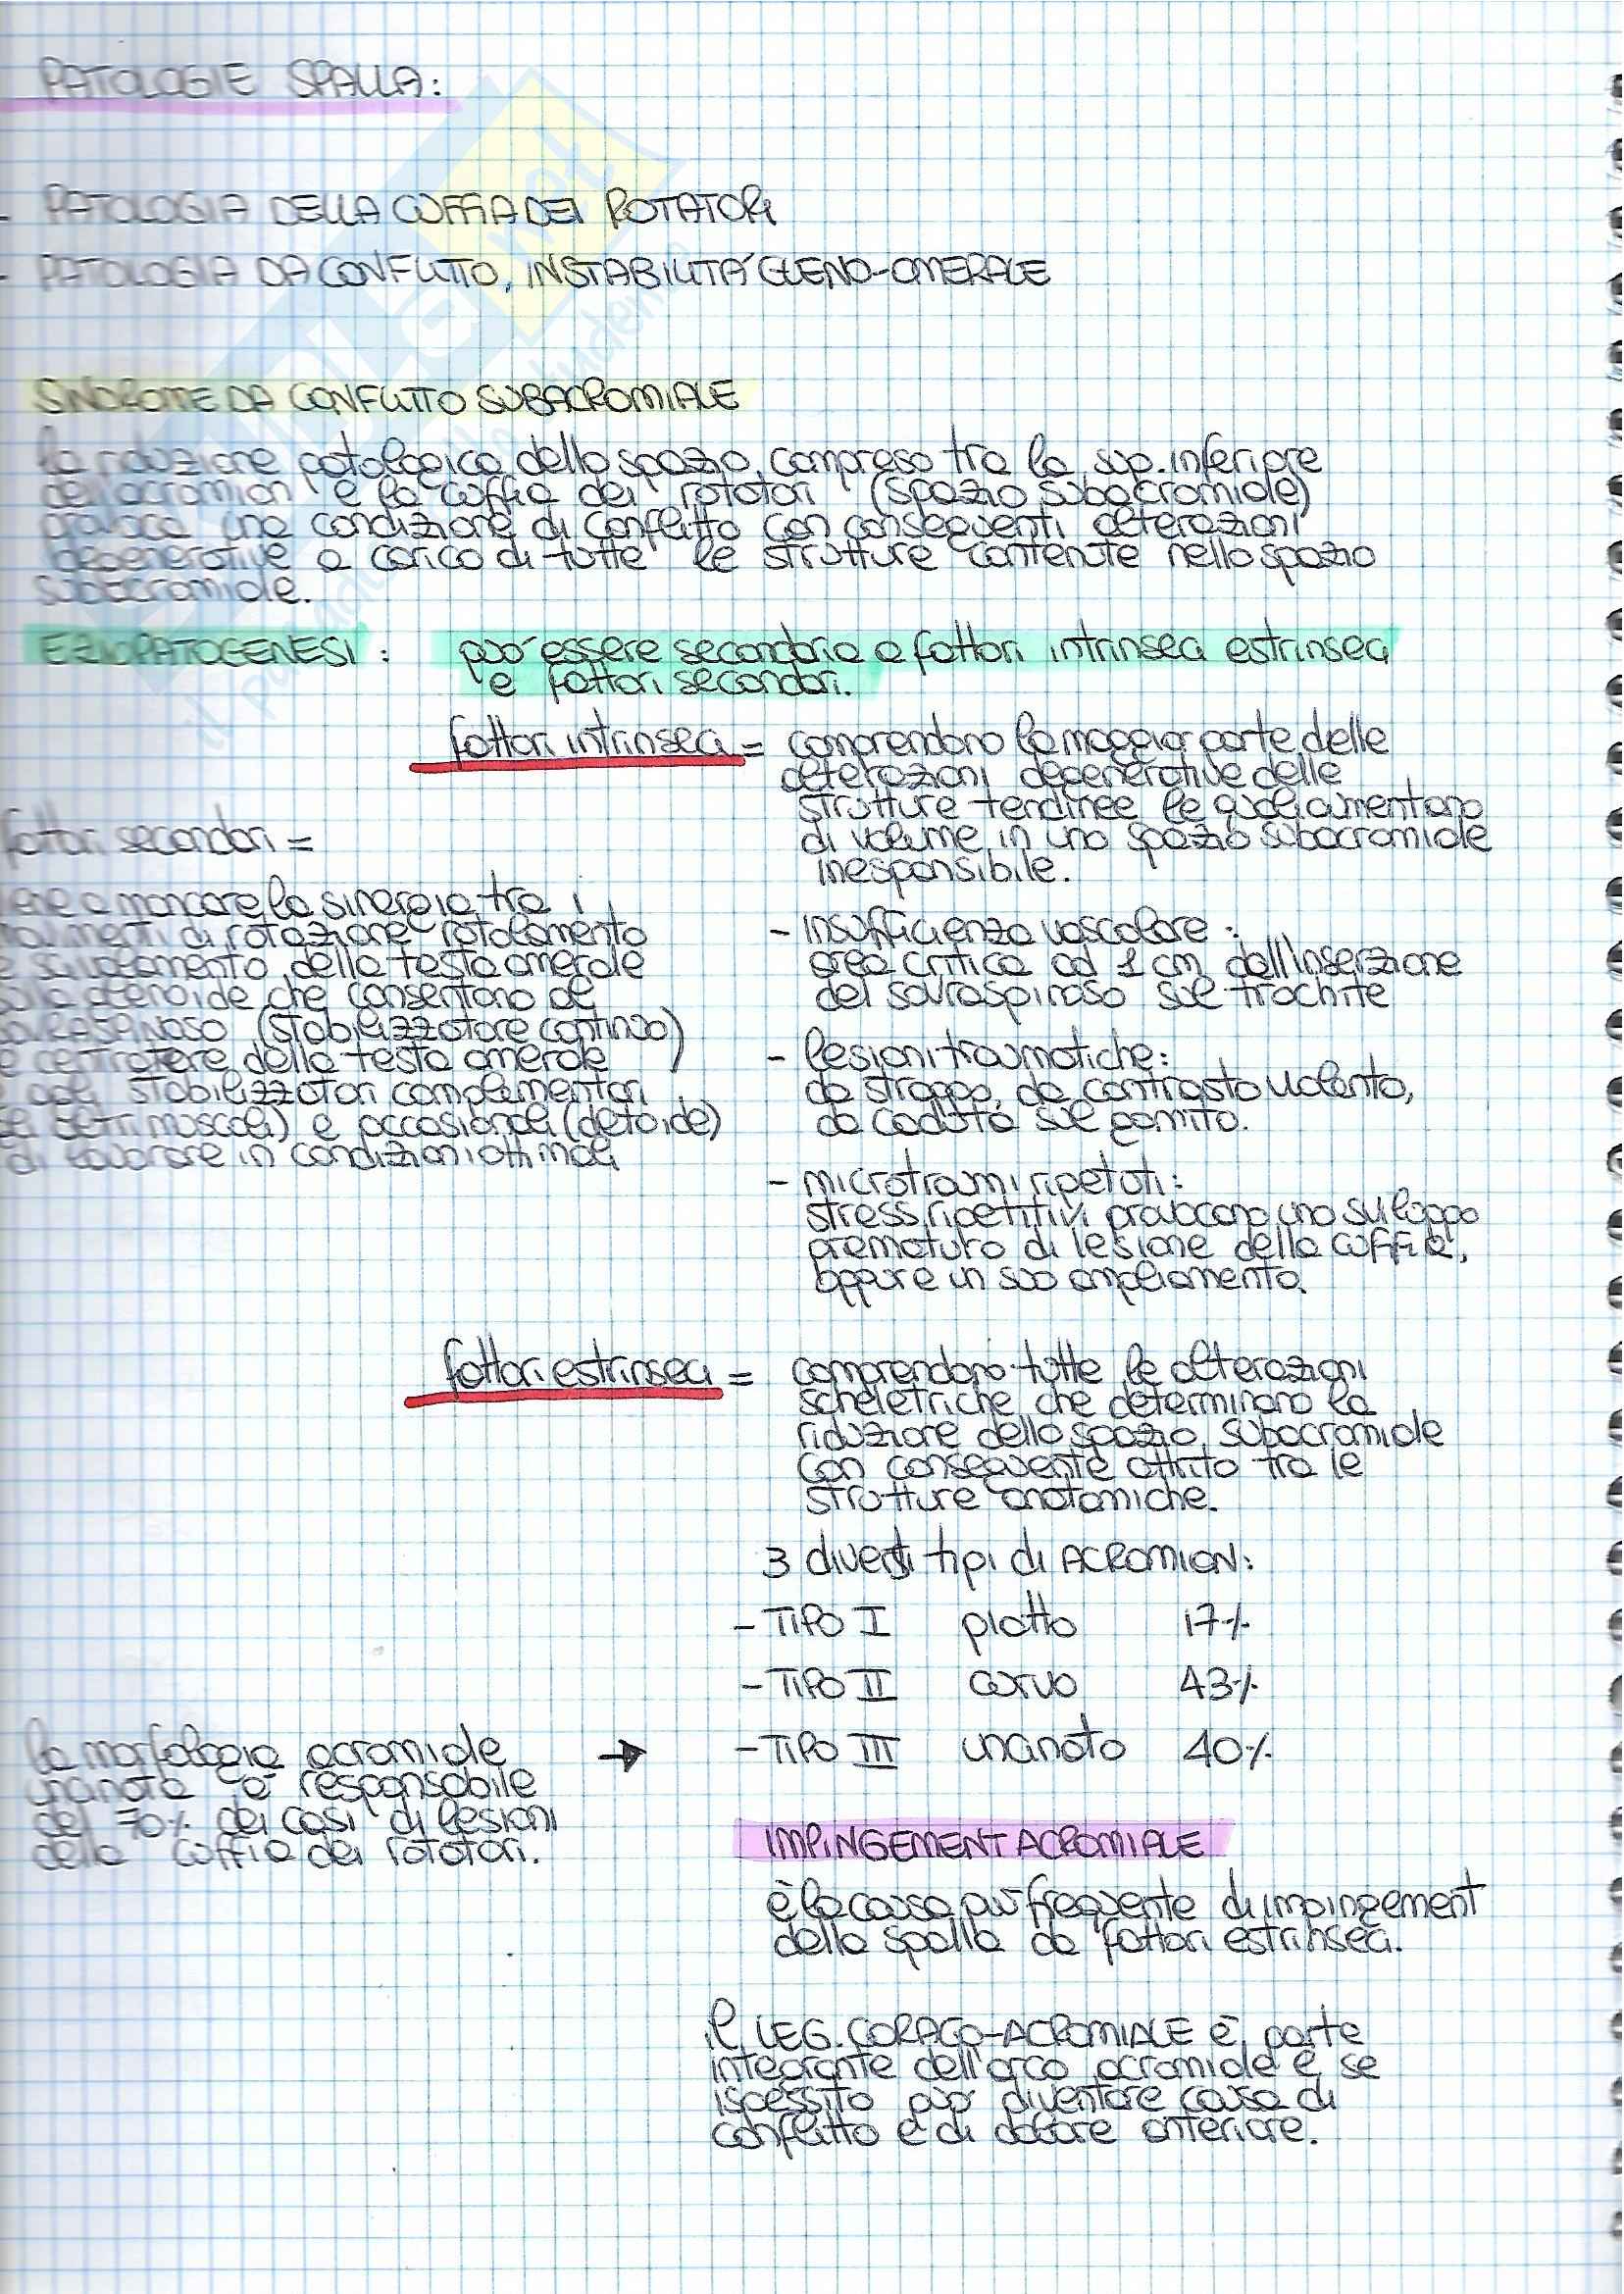 PATOLOGIE SPALLA:
- PATOLOGIA DELLA CUFFIA DEI ROTATORI
- PATOLOGIA DA CONFLITTO, INSTABILITÁ GLENO-OMERALE
SINDROME DA CONFLITTO SUBACROMIALE
la riduzione patologica dello spazio compreso tra la sup. inferiore
dell'acromion e la cuffia dei rotatori (spazio subacromiale)
provoca una condizione di conflitto con conseguenti alterazioni
degenerative a carico di tutte le strutture contenute nello spazio
subacromiale.
EZIOPATOGENESI: può essere secondaria a fattori intrinseci estrinseci
e fattori secondari.
fattori intrinseci = comprendono la maggior parte delle
alterazioni degenerative delle
strutture tendinee le quali aumentano
di volume in uno spazio subacromiale
inespansibile.
- insufficienza vascolare:
area critica ad 1 cm dall'inserzione
del sovraspinoso sul trochite
- lesioni traumatiche:
da strappo, da contrasto violento,
da caduta sul gomito.
- microtraumi ripetuti:
stress ripetitivi provocano uno sviluppo
prematuro di lesione della cuffia,
oppure un suo ampliamento.
fattori secondari =
ene a mancare la sinergia tra i
movimenti di rotazione rotolamento
e scivolamento della testa omerale
sulla glenoide che consentono al
sovraspinoso (stabilizzatore continuo)
e centratore della testa omerale
e agli stabilizzatori complementari
(gli altri muscoli) e occasionali (deltoide)
di lavorare in condizioni ottimali
fattori estrinseci = comprendono tutte le alterazioni
scheletriche che determinano la
riduzione dello spazio subacromiale
con conseguente attrito tra le
strutture anatomiche.
3 diversi tipi di ACROMION:
- TIPO I piatto 17%
- TIPO II curvo 43%
- TIPO III uncinato 40%
la morfologia acromiale →
uncinata è responsabile
del 70% dei casi di lesioni
della cuffia dei rotatori.
IMPINGEMENT ACROMIALE
è la causa più frequente di impingement
della spalla da fattori estrinseci.
il LEG. CORACO-ACROMIALE è parte
integrante dell'arco acromiale e se
ispessito può diventare causa di
conflitto e di dolore anteriore.